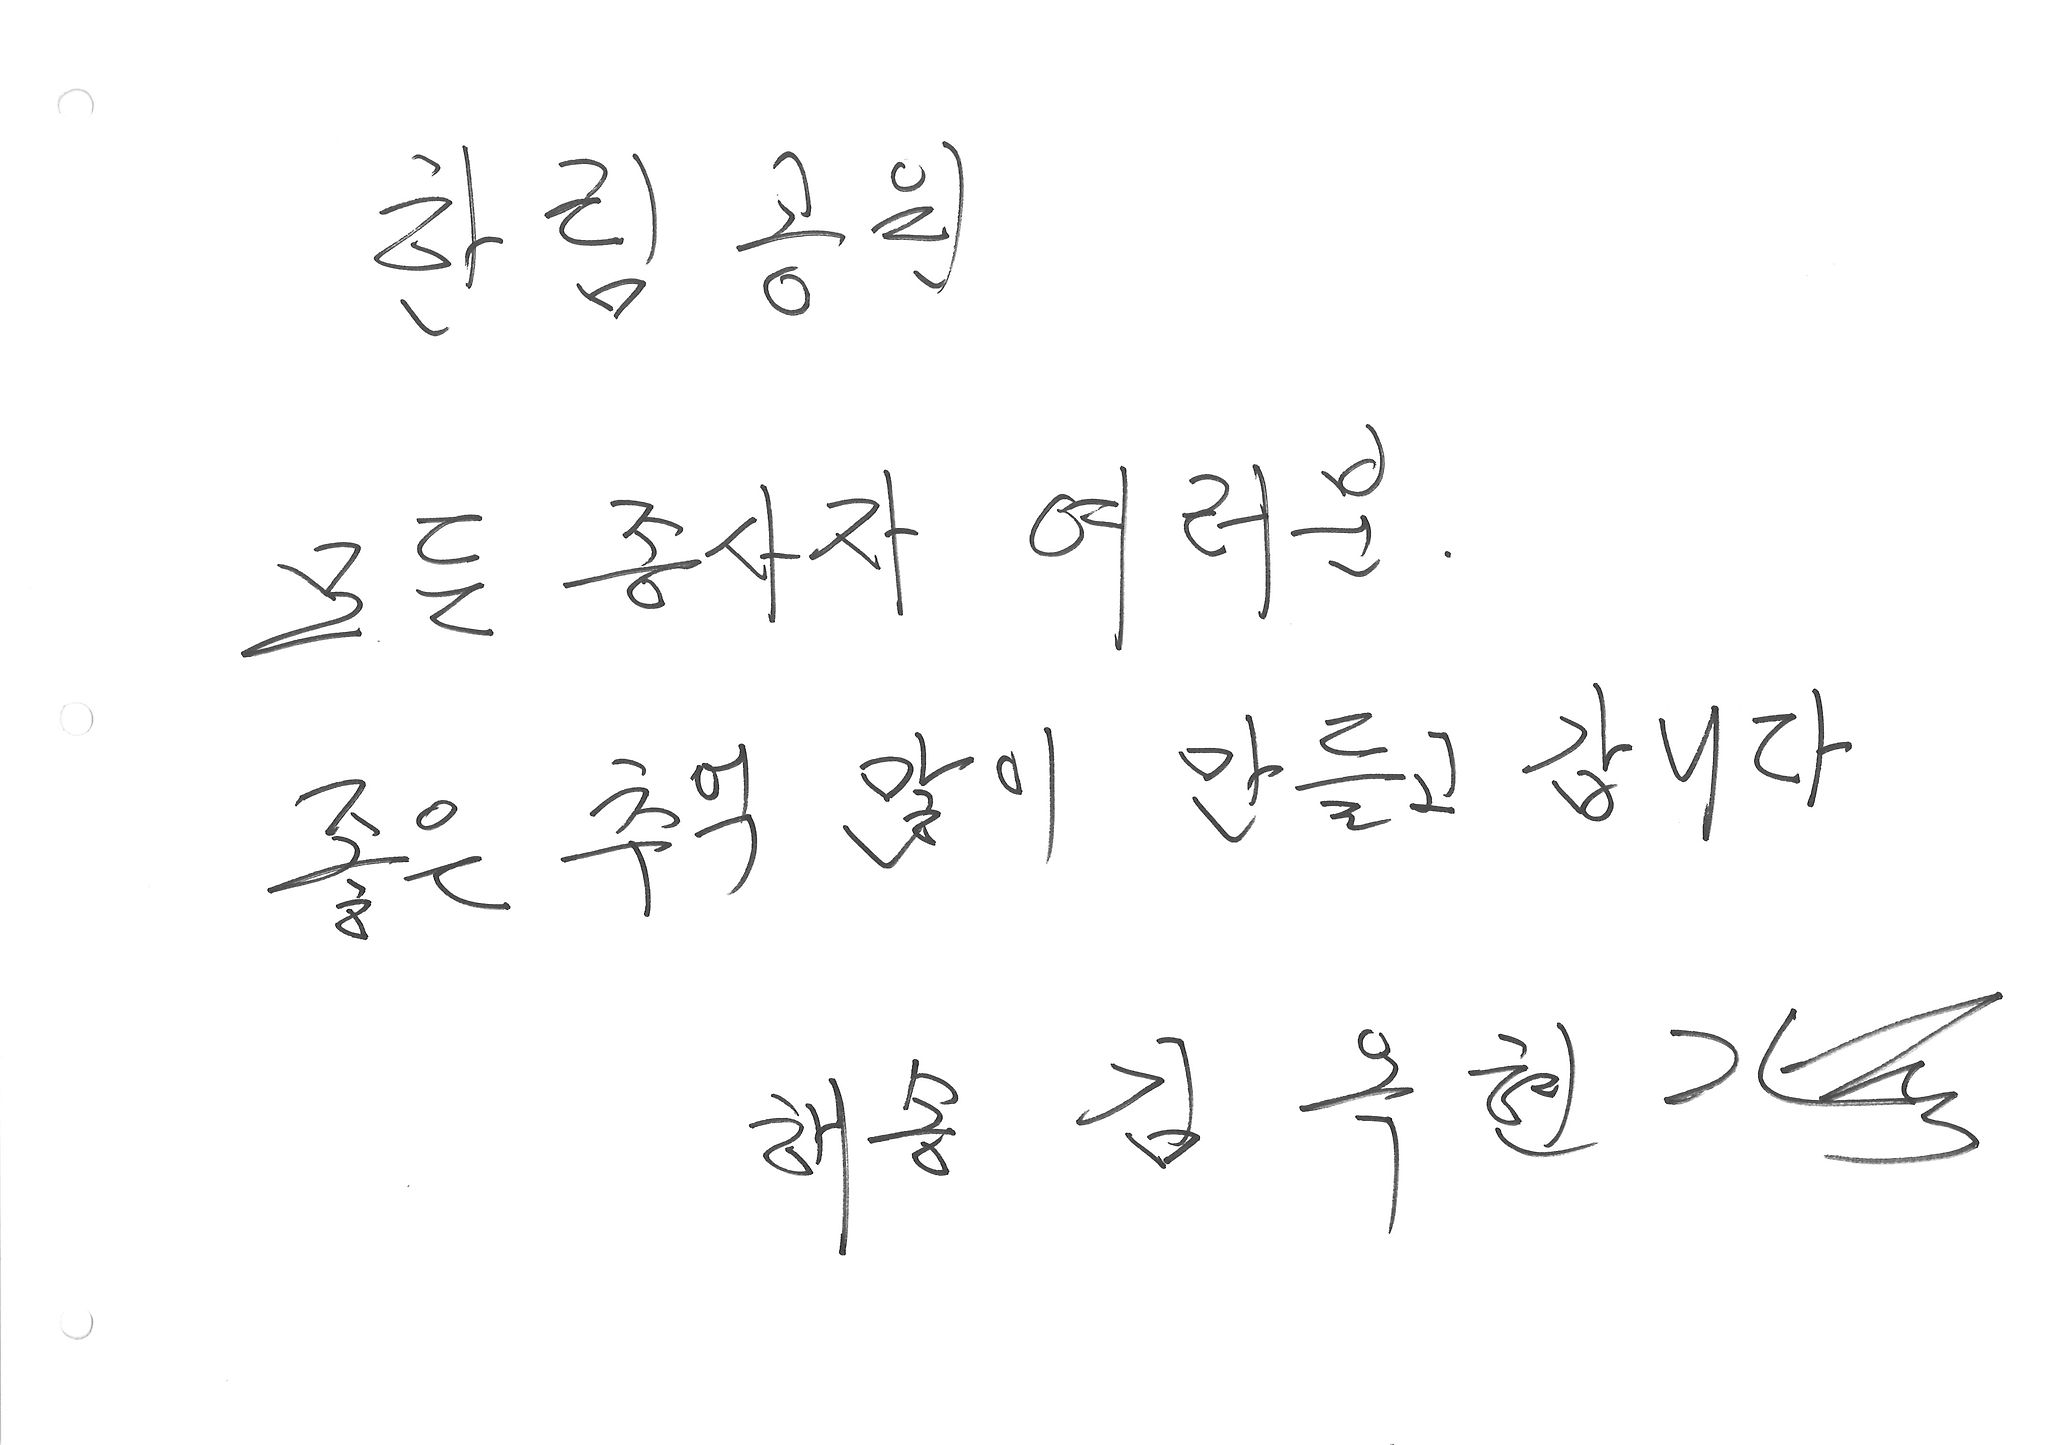 한림공원
모든 종사자 여러분.
좋은 추억 많이 만들고 갑니다
해송 김우현